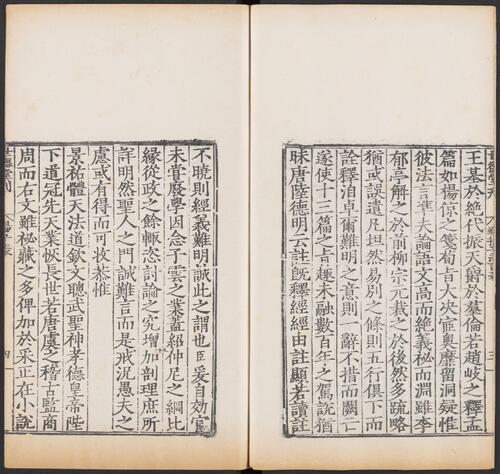 王基於絶代振天爵於羣倫若趙岐之釋孟
篇如楊倞之箋荀旨大夬奥靡留洞疑惟
彼法言準夫論語文高而絶義秘而淵雖李
郁亭解之於前柳宗元裁之於後然多疏略
猶或誤遺凡坦然易別之條則五行俱下而
詮釋洎卓爾難明之意則一辭不措而闕亡
遂使十三篇之旨趣未融數百年之駕説猶
昧唐陸德明云註既釋經經由註顯若讀註
不曉則經義難明誠此之謂也臣爰自効官
未嘗廢學因念子雲之業蓋紹仲尼之綱比
緣從政之餘輒恣討論之究增加剖理庶所
詳明然聖人之門誠難言而是戒況愚夫之
慮或有得而可收恭惟
景祐體天法道欽文聰武聖神孝德皇帝陛
下道冠先天業恢長世若唐虞之稽古監商
周而右文雖秘藏之多俾加於采正在小説
四